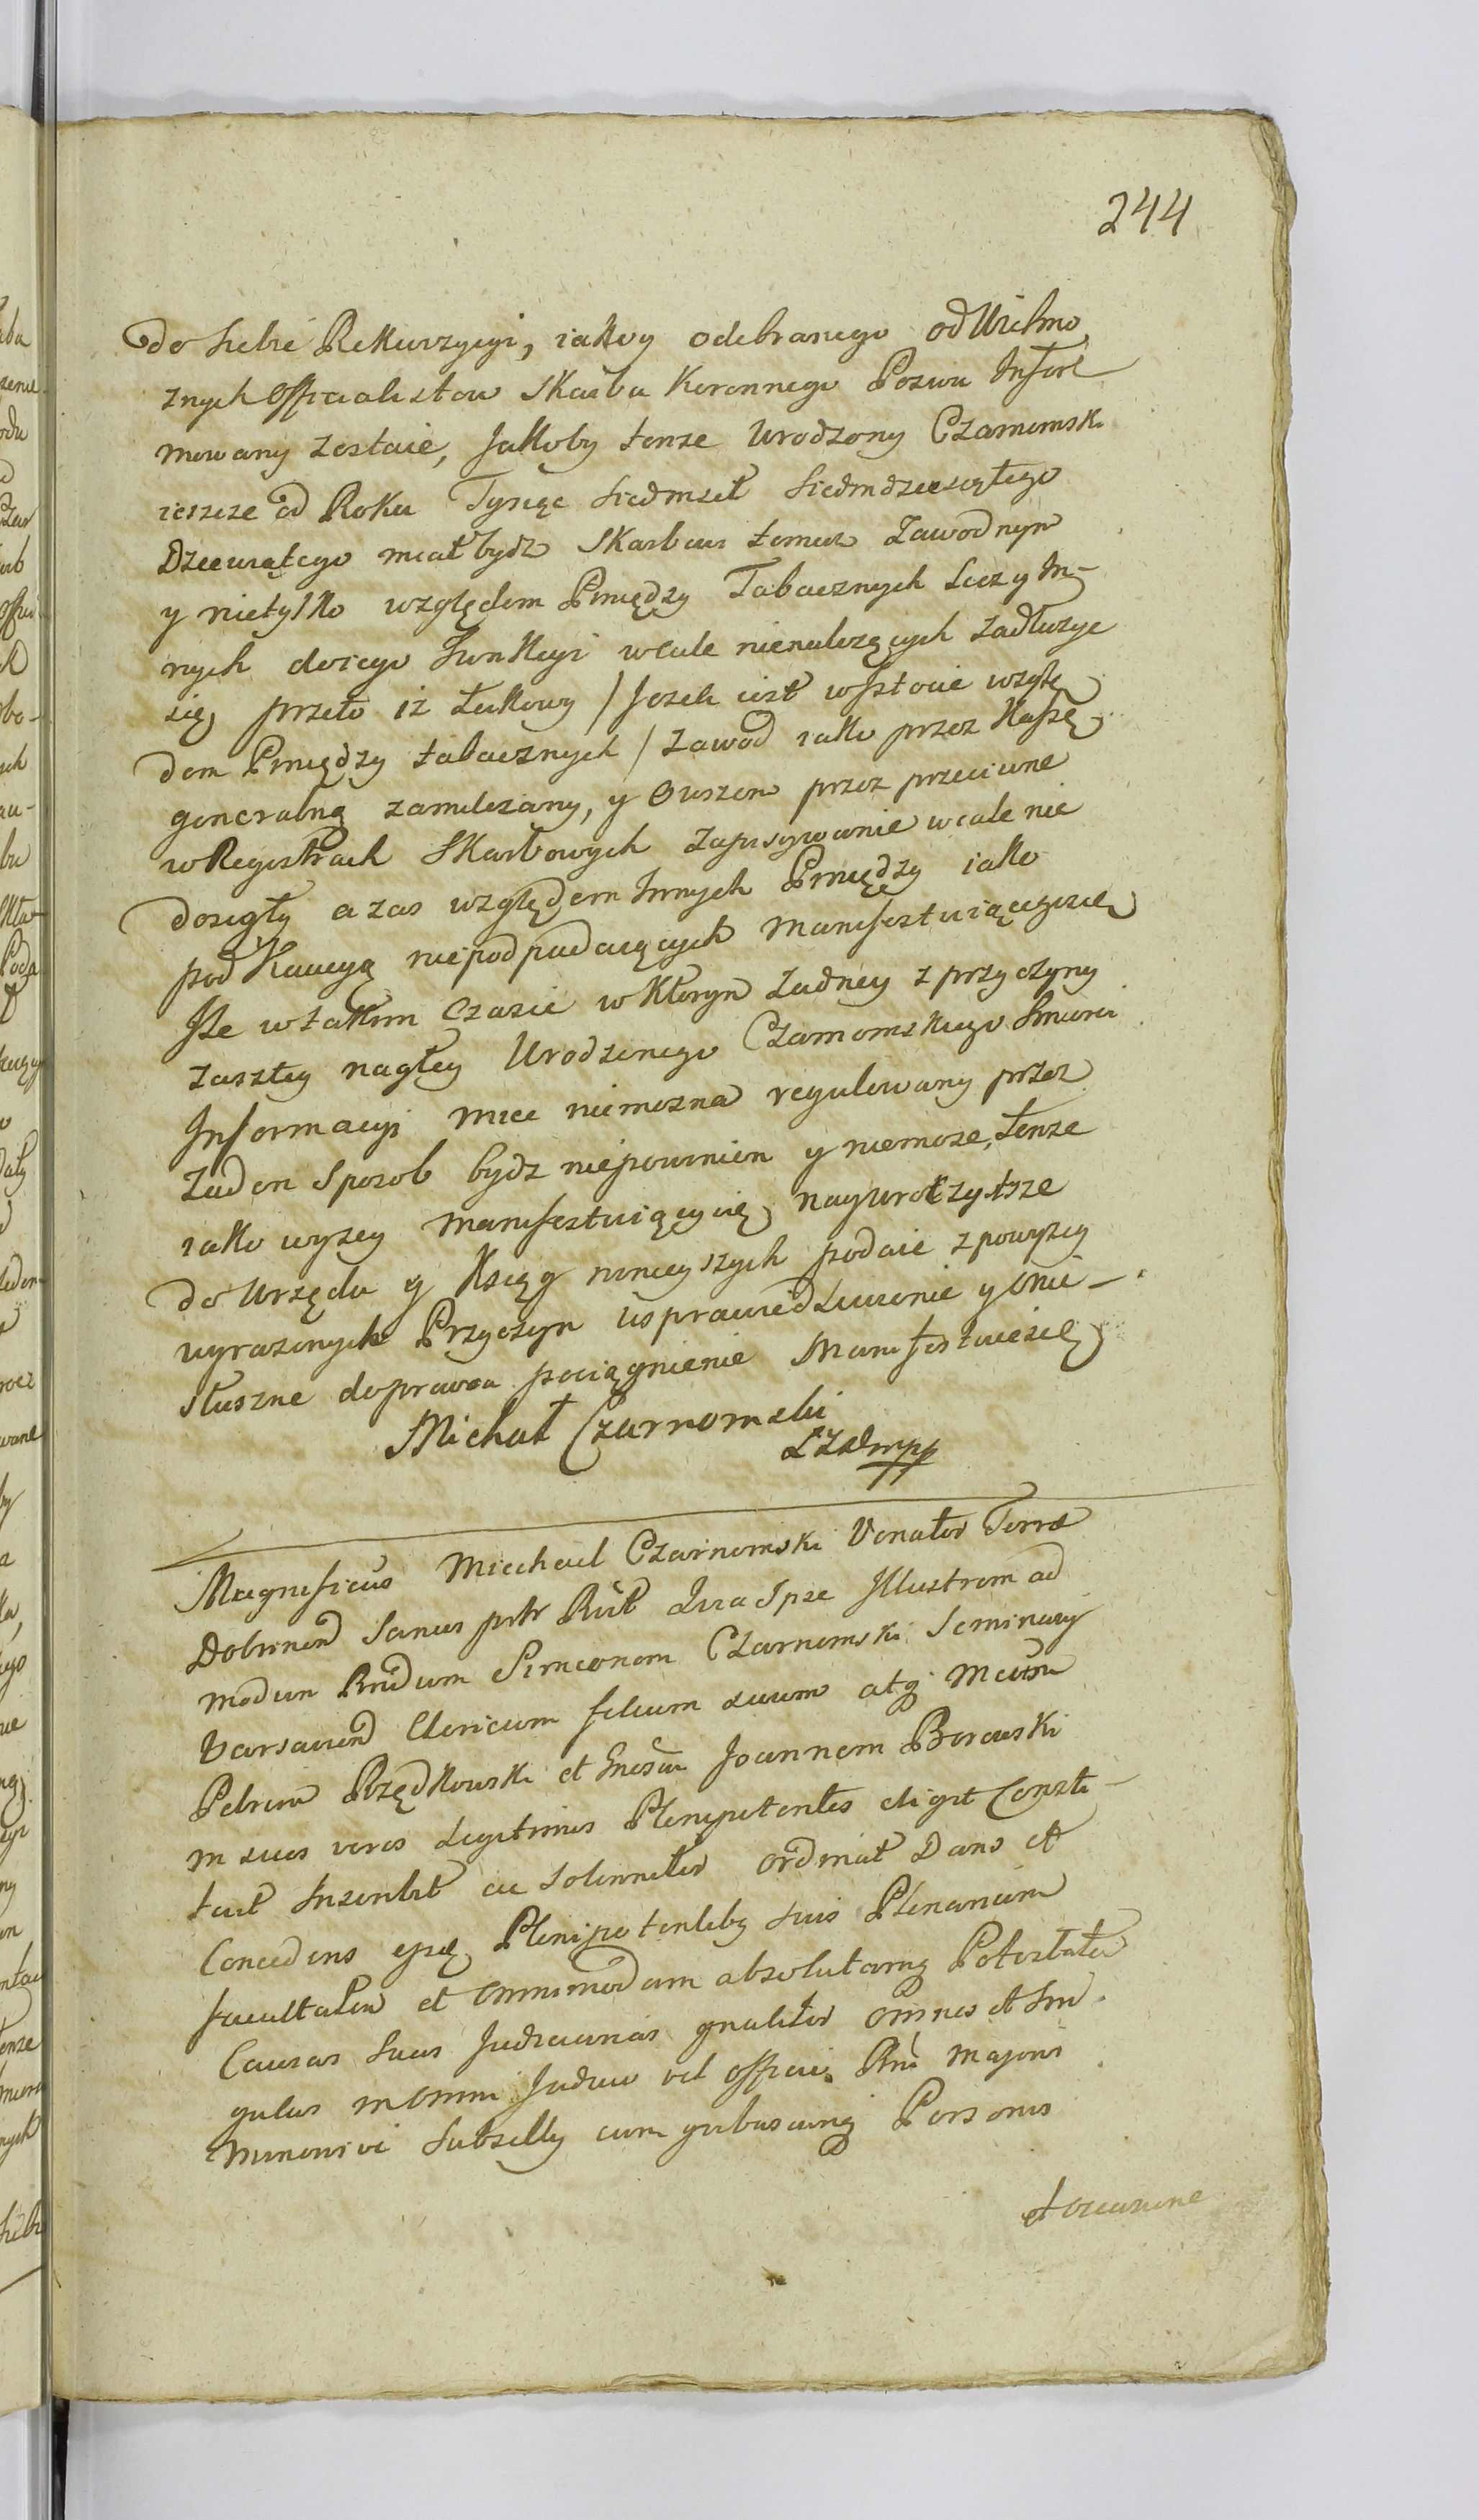 244
do siebie Rekurzyeyi, iakoy odebranego od Wielmo
znych Officialistow Skarbu Koronnego Pozwu Infor
mowany zostaie, Jakoby tenze Urodzony Czarnomski
ieszcze od Roku Tysiąc Siedmset Siedmdziesiątego
Dziewiątego miał bydz Skarbowi temuz Zawodnym
y nietylko względem Pieniędzy Tabacznych Leczy In-
nych doiego Funkcyi wcale nienalezących zadłuzyc
się, przeto iz takowy / Jezeli iest wistocie wzglę
dem Pieniędzy tabacznych / Zawod iako przez Kassę
generalną zamilczany, y Owszem przez przeciwne
w Regestrach Skarbowych Zapisywanie wcale nie
dosięgły a zas względem Innych Pieniędzy iako
pod Kaucyą niepodpadaiących manifestuiącegosię
Ile wtakim Czasie w Ktorym zadney z przyczyny
zaszłey nagłey Urodzonego Czarnomskiego Smierci
Informacyi miec niemozna regulowany przez
zaden Sposob bydz niepowinien y niemoze, tenze
iako wyzey manifestuiącysię nayuroczystsze
do Urzędu y Ksiąg ninieyszych podaie z powyzey
wyrazonych Przyczyn usprawiedliwienie y Onie-
słuszne doprawa pociągnienie Manifestuiesię
Michał Czarnomski
ŁZD mpp
Magnificus Miechael Czarnomski Venator Terra
Dobrinen Sanus Illustrem ad
modum Rndum Simeonem Czarnomski Seminarij
Varsavien Clericum filium suum atq
Petrum Rzędkowski et Joannem Borawski
in suos veros Legitimos Plenipotentes eligit Consti-
tuit Inscribit ac Solenniter ordinat Dans et
Concedens Plenipotentibq suis Plenariam
facultatem et Omnimodam absolutamq Potestatem
Causas Suas Judiciarias gnaliter omnes et Sin
gulas in Omni Judicio vel Officio Rni Majoris
Minorisve Subsellij cum quibuscunq Personis
et occasione